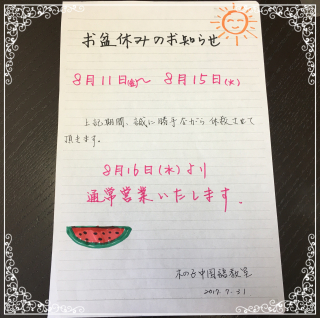 お盆休みのお知らせ
8月11日(金)〜 8月15日(火)
上記期間、誠に勝手ながら休校させて
頂きます。
8月16日(水)より
通常営業いたします。
木の子中国語教室
2017. 7. 31